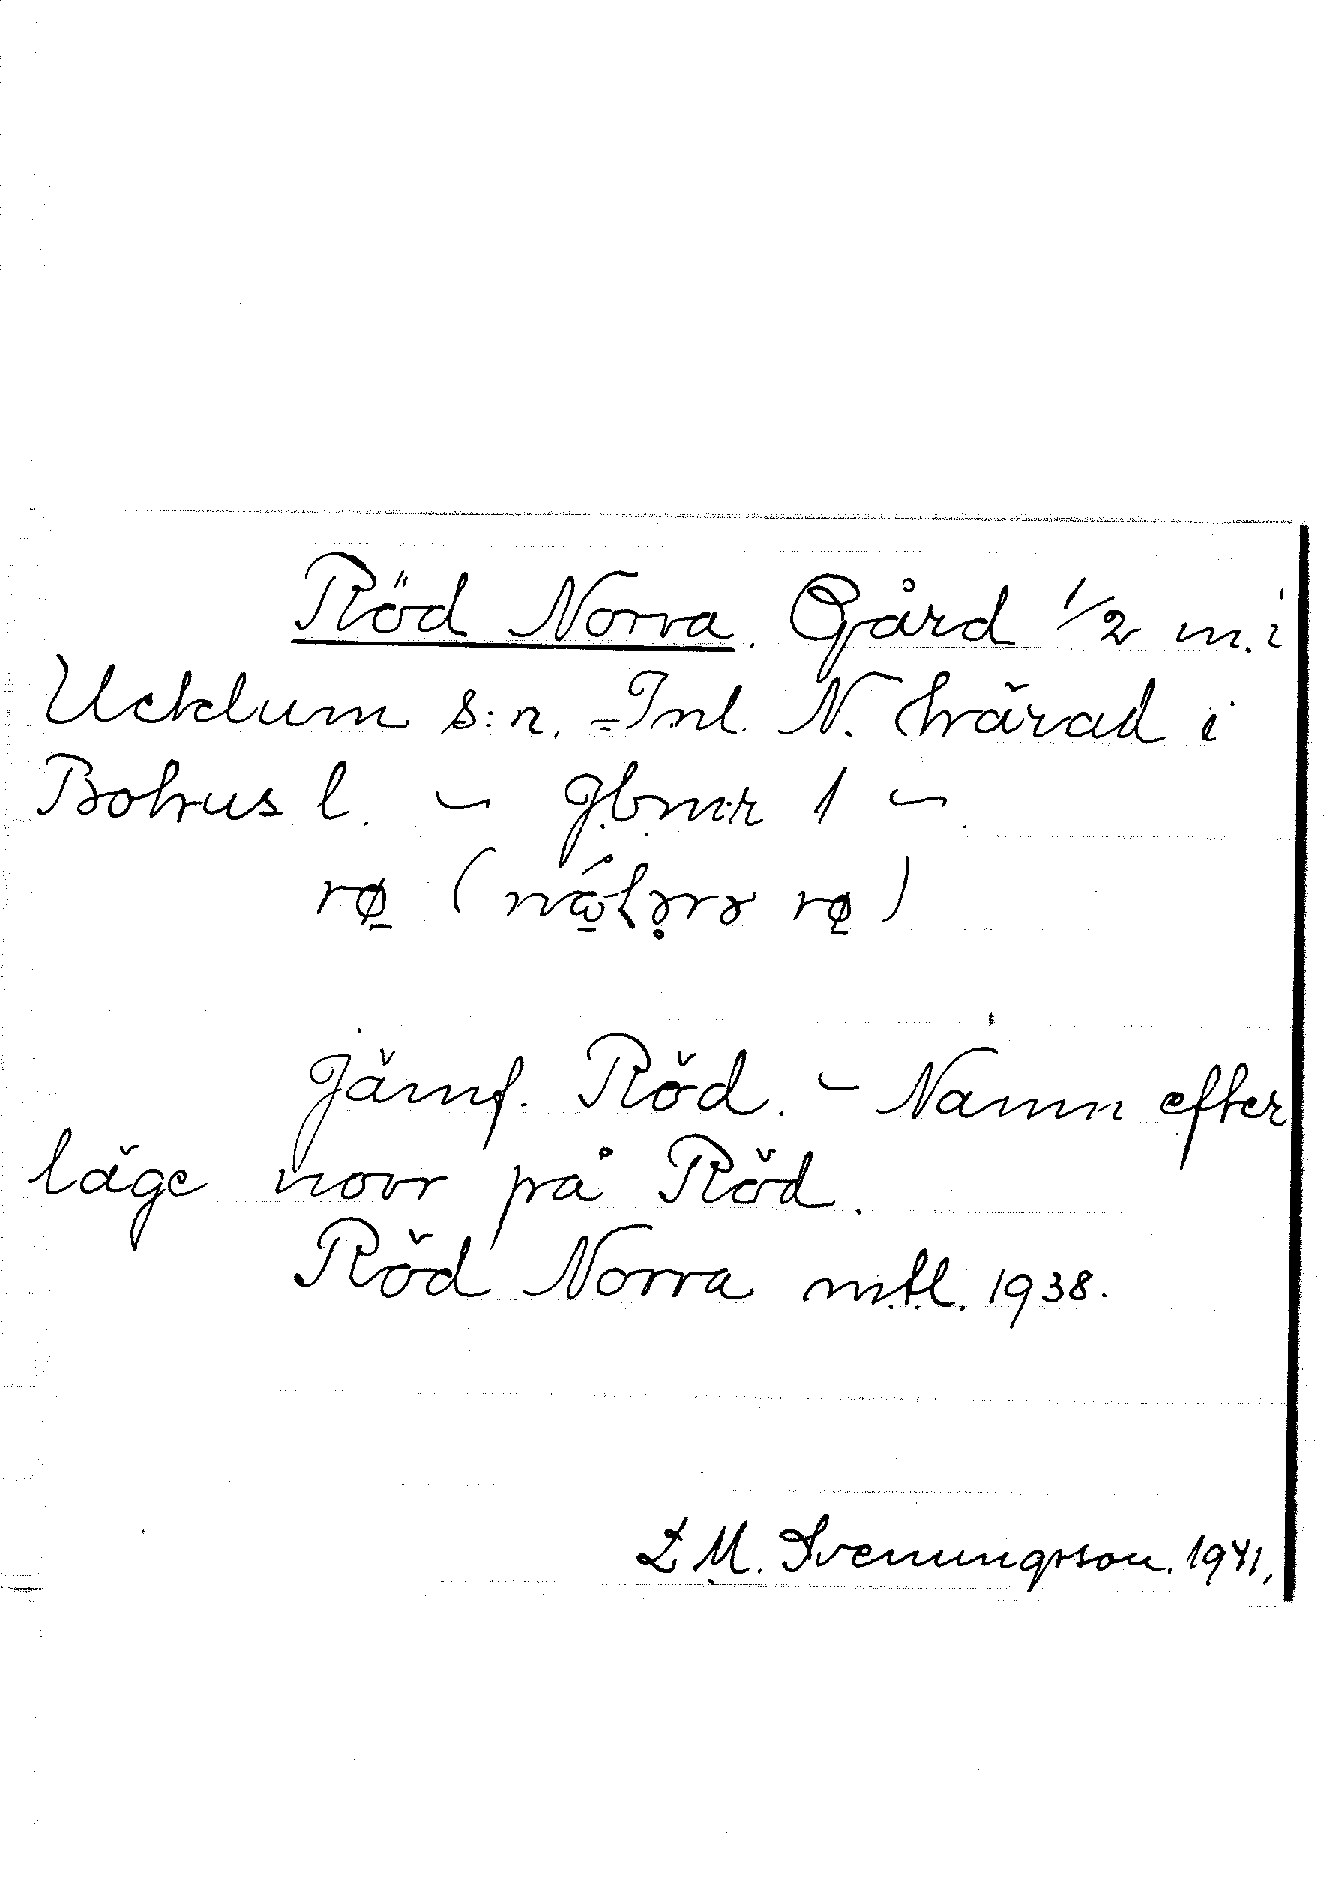 Röd Norra. Gård 1/2 m. i
Ucklum s:n. Inl. N. härad i
Bohus l. — g.b.n:r 1 —
rø ( rø )
Jämf. Röd. — Namn efter
läge norr på Röd.
Röd Norra m.t.l. 1938.
L M. Svenungsson. 1941.